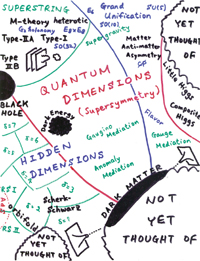 SUPERSTRING
M-theory heterotic
G₂ holonomy E₈×E₈
Type-IIA Type-I
SO(32)
Type
IIB
E₆ Grand
Unification
SU(5)
SO(10)
Supergravity
Matter
Anti-matter
Asymmetry
NOT
YET
THOUGHT OF
Little Higgs
Composite
Higgs
QUANTUM
DIMENSIONS
(Supersymmetry)
BLACK
HOLE
Dark Energy
Flavor
Gaugino
Mediation
Gauge
Mediation
HIDDEN
DIMENSIONS
Anomaly
Mediation
Scherk-
Schwarz
DARK MATTER
RS I
RS II
AdS
orbifold
NOT YET
THOUGHT OF
NOT
YET
THOUGHT OF